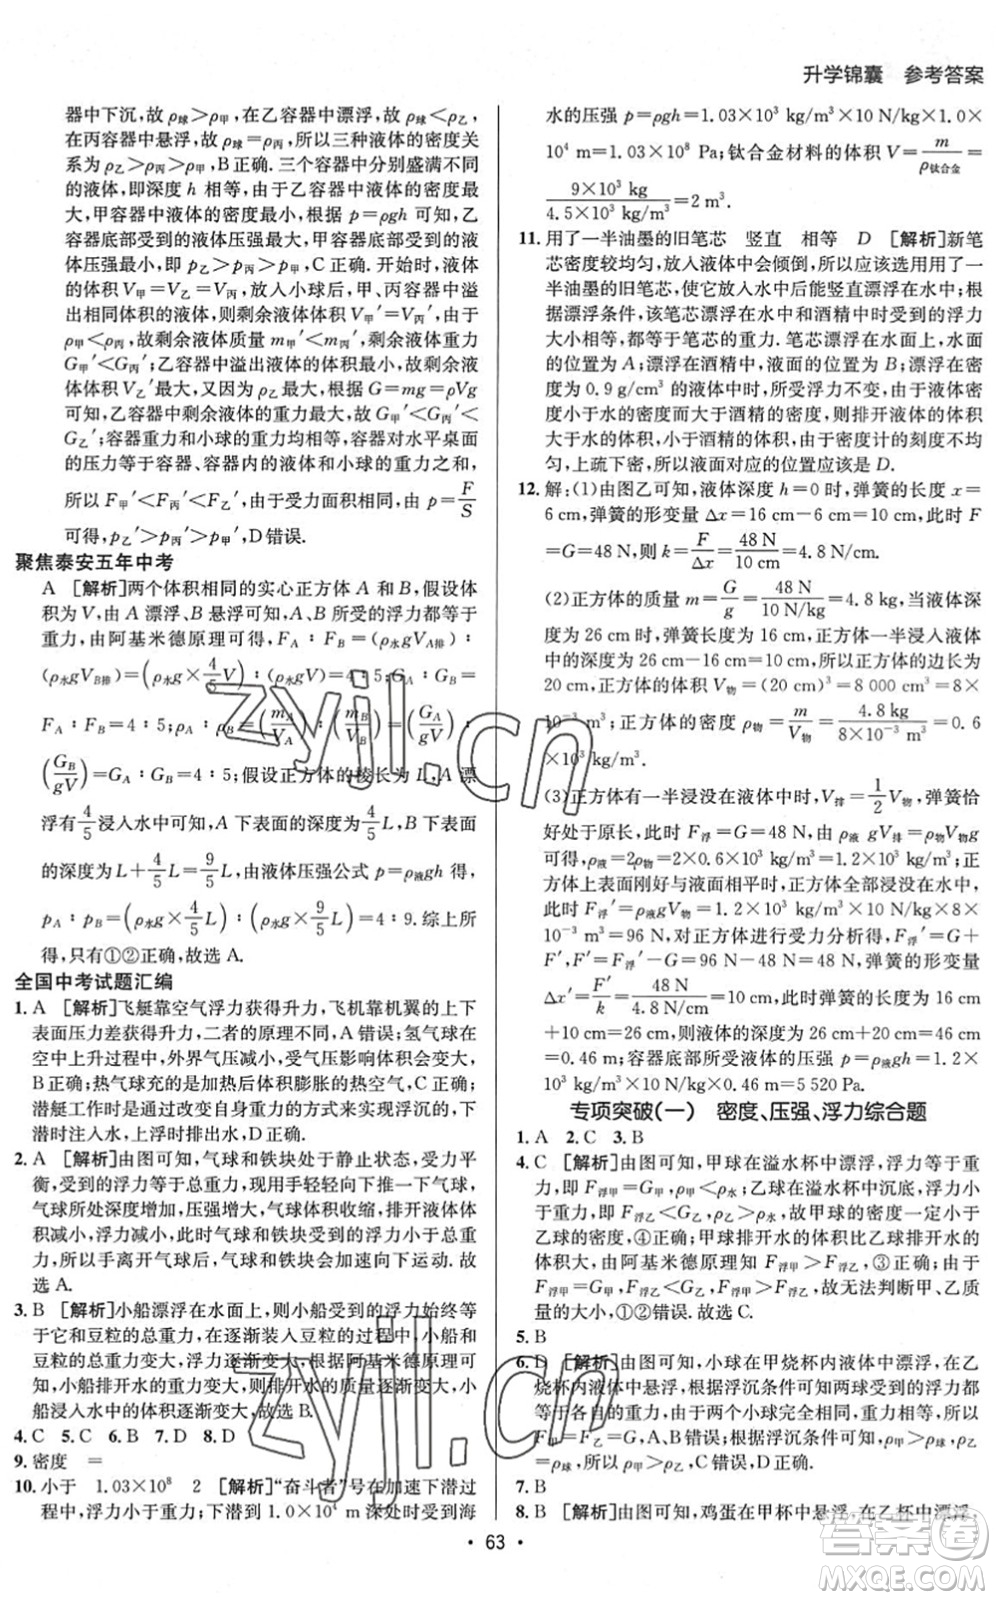 升学锦囊 参考答案
器中下沉,故 ρ球＞ρ甲,在乙容器中漂浮,故 ρ球＜ρ乙,
在丙容器中悬浮,故 ρ球＝ρ丙,所以三种液体的密度关
系为 ρ乙＞ρ丙＞ρ甲,B 正确. 三个容器中分别盛满不同
的液体,即深度 h 相等,由于乙容器中液体的密度最大,
甲容器中液体的密度最小,根据 p＝ρgh 可知,乙
容器底部受到的液体压强最大,甲容器底部受到的液
体压强最小,即 p乙＞p丙＞p甲,C 正确. 开始时,液体
的体积 V甲＝V乙＝V丙,放入小球后,甲容器中溢
出相同体积的液体,则剩余液体体积 V甲′＝V丙′,由于
ρ甲＜ρ丙,故剩余液体质量 m甲′＜m丙′,剩余液体重力
G甲′＜G丙′;乙容器中溢出液体的体积最小,故剩余液
体体积 V乙′最大,又因为 ρ乙最大,根据 G＝mg＝ρVg
可知,乙容器中剩余液体的重力最大,故 G甲′＜G丙′＜
G乙′;容器的重力和小球的重力均相等,容器对水平桌面
的压力等于容器、容器内的液体和小球的重力之和,
所以 F甲′＜F丙′＜F乙′,由于受力面积相同,由 p＝F/S
可得,p乙′＞p丙′＞p甲′,D 错误.
聚焦泰安五年中考
A [解析]两个体积相同的实心正方体 A 和 B,假设体
积为 V,由 A 漂浮、B 悬浮可知,A、B 所受的浮力都等于
重力,由阿基米德原理可得,FA∶FB＝(ρ水gVA排)∶
(ρ水gVB排)＝(ρ水g×4/5V)∶(ρ水gV)＝4∶5;GA∶GB＝
FA∶FB＝4∶5;ρA∶ρB＝(mA/VA)∶(mB/VB)＝(GA/gV)∶
(GB/gV)＝GA∶GB＝4∶5;假设正方体的棱长为 L,A 漂
浮有4/5浸入水中可知,A 下表面的深度为4/5L,B 下表面
的深度为 L＋4/5L＝9/5L,由液体压强公式 p＝ρ液gh 得,
pA∶pB＝(ρ水g×4/5L)∶(ρ水g×9/5L)＝4∶9.综上所
得,只有①②正确,故选 A.
全国中考试题汇编
1. A [解析]飞艇靠空气浮力获得升力,飞机靠机翼的上下
表面压力差获得升力,二者的原理不同,A 错误;氢气球在
空中上升过程中,外界气压减小,受气压影响体积会变大,
B 正确;热气球充的是加热后体积膨胀的热空气,C 正确;
潜艇工作时是通过改变自身重力的方式来实现上浮、下潜的,
下潜时注入水,上浮时排出水,D 正确.
2. A [解析]由图可知,气球和铁块处于静止状态,受力平
衡,受到的浮力等于总重力. 现用手轻轻向下按一下气球,
气球所处深度增加,压强增大,气球体积收缩,排开液体体
积减小,浮力减小,则此时气球和铁块受到的浮力小于总重
力,所以手离开气球后,气球和铁块会加速向下运动. 故
选 A.
3. B [解析]小船漂浮在水面上,则小船受到的浮力始终等
于它和豆粒的总重力,在逐渐装入豆粒的过程中,小船和
豆粒的总重力变大,浮力逐渐变大;根据阿基米德原理可
知,小船排开水的重力逐渐变大,则排开水的体积逐渐变大,小
船浸入水中的体积逐渐变大,故选 B.
4. C 5. C 6. B 7. D 8. D
9. 密度 ＝
10. 小于 1.03×10⁸ 2 [解析]“奋斗者”号在加速下潜过
程中,浮力小于重力;下潜到 1.0×10⁴ m 深处时受到海
水的压强 p＝ρgh＝1.03×10³ kg/m³×10 N/kg×1.0×
10⁴ m＝1.03×10⁸ Pa;钛合金材料的体积 V＝m/ρ钛合金＝
9×10³ kg/4.5×10³ kg/m³＝2 m³.
11. 用了一半油墨的旧笔芯 竖直 相等 D [解析]新笔
芯密度较均匀,放入液体中会倾倒,所以应该选用用了一
半油墨的旧笔芯,使它放入水中后能竖直漂浮在水中;根
据漂浮条件,该笔芯漂浮在水中和酒精中时受到的浮
力大小相等,都等于笔芯的重力;笔芯漂浮在水面上,水面
的位置为 A;漂浮在酒精中,液面的位置为 B;漂浮在
密度为 0.9 g/cm³ 的液体中时,所受浮力不变,由于液体密
度小于水的密度而大于酒精的密度,则排开液体的体积
大于水的体积,小于酒精的体积,由于密度计的刻度不均
匀,上疏下密,所以液面对应的位置应该是 D.
12. 解:(1)由图乙可知,液体深度 h＝0 时,弹簧的长度 x＝
6 cm,弹簧的形变量 Δx＝16 cm－6 cm＝10 cm,此时 F
＝G＝48 N,则 k＝F/Δx＝48 N/10 cm＝4.8 N/cm.
(2)正方体的质量 m＝G/g＝48 N/10 N/kg＝4.8 kg,当液体深
度为 26 cm 时,弹簧长度为 16 cm,正方体一半浸入液体
中.所以 26 cm－16 cm＝10 cm,所以正方体的边长为
20 cm,正方体的体积 V物＝(20 cm)³＝8 000 cm³＝8×
10⁻³ m³;正方体的密度 ρ物＝m/V物＝4.8 kg/8×10⁻³ m³＝0.6
×10³ kg/m³.
(3)正方体有一半浸没在液体中时,V排＝1/2V物,弹簧恰
好处于原长,此时 F浮＝G＝48 N,由 ρ液gV排＝ρ物V物g
可得,ρ液＝2ρ物＝2×0.6×10³ kg/m³＝1.2×10³ kg/m³;正
方体上表面刚好与液面相平时,正方体浸没在水中,
此时 F浮′＝ρ液gV物＝1.2×10³ kg/m³×10 N/kg×8×
10⁻³ m³＝96 N,对正方体进行受力分析得,F浮′＝G＋
F′,F′＝F浮′－G＝96 N－48 N＝48 N,此时弹簧伸长
Δx′＝F′/k＝48 N/4.8 N/cm＝10 cm,此时弹簧的长度为 16 cm
＋10 cm＝26 cm,则液体的深度为 26 cm＋20 cm＝46 cm
＝0.46 m;容器底部所受液体的压强 p＝ρ液gh＝1.2×
10³ kg/m³×10 N/kg×0.46 m＝5 520 Pa.
专项突破(一) 密度、压强、浮力综合题
1. A 2. C 3. B
4. C [解析]由图可知,甲球在溢水杯中漂浮,浮力等于重
力,即 F浮甲＝G甲,ρ甲＜ρ水;乙球在溢水杯中沉底,浮力小
于重力,即 F浮乙＜G乙,ρ乙＞ρ水,故甲球的密度一定小于
乙球的密度,④正确;甲球排开水的体积比乙球排开水的
体积大,由阿基米德原理知 F浮甲＞F浮乙,③正确;由于
F浮甲＝G甲,F浮乙＜G乙,F浮甲＞F浮乙,故无法判断甲、乙质
量的大小,①②错误.故选 C.
5. B
6. D [解析]由图可知,小球在甲烧杯内液体中漂浮,在乙
烧杯内液体中悬浮,根据浮沉条件可知,浮力都等于重力,
F甲＝F乙＝G,A、B、C错误;由浮沉条件可知,ρ甲＞ρ球,
ρ球＝ρ乙,所以 ρ甲＞ρ乙,D 正确.
7. C
8. B [解析]由图可知,鸡蛋在甲杯中悬浮,在乙杯中漂浮,
• 63 •
zyjl.cn
zyjl.cn
答案圈
MXQE.COM